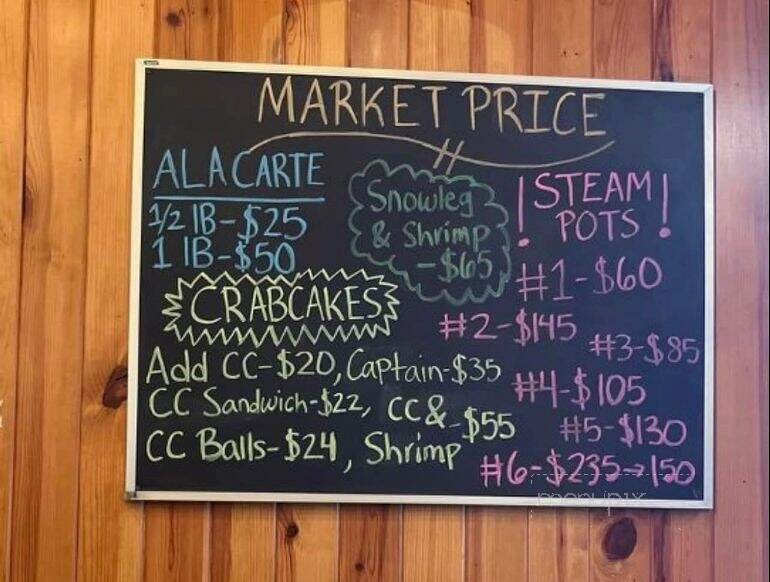 MARKET PRICE
ALA CARTE
1/2 lB-$25
1 lB-$50
Snowleg
& Shrimp
-$65
! STEAM !
POTS
#1-$60
#2-$145
#3-$85
#4-$105
#5-$130
#6-$235→150
CRABCAKES
Add CC-$20, Captain-$35
CC Sandwich-$22, CC & -$55
CC Balls-$24, Shrimp
menupix